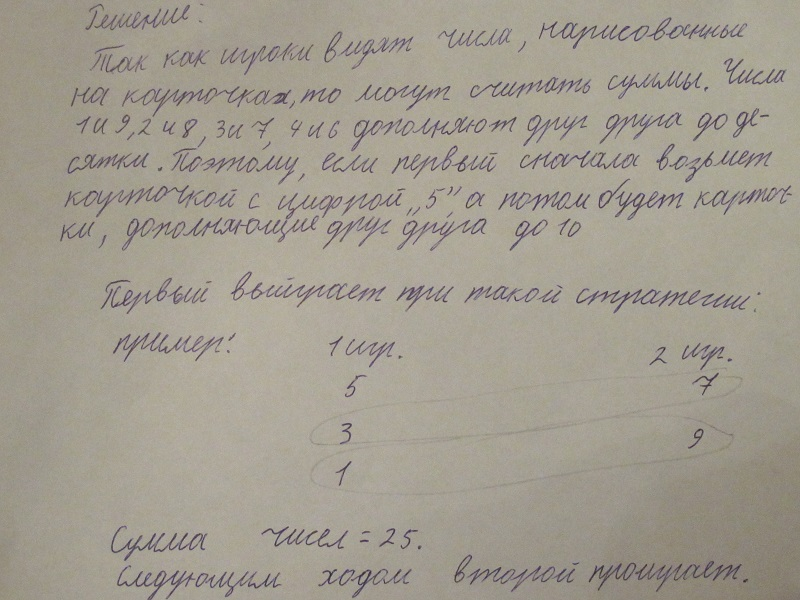 Решение:
Так как игроки видят числа, нарисованные
на карточках, то могут считать суммы. Числа
1 и 9, 2 и 8, 3 и 7, 4 и 6 дополняют друг друга до де-
сятки. Поэтому, если первый сначала возьмет
карточкой с цифрой „5", а потом будет карточ-
ки, дополняющие друг друга до 10
Первый выйграет при такой стратегии:
пример: 1 игр. 2 игр.
5 7
3 9
1
Сумма чисел = 25.
Следующим ходом второй проиграет.